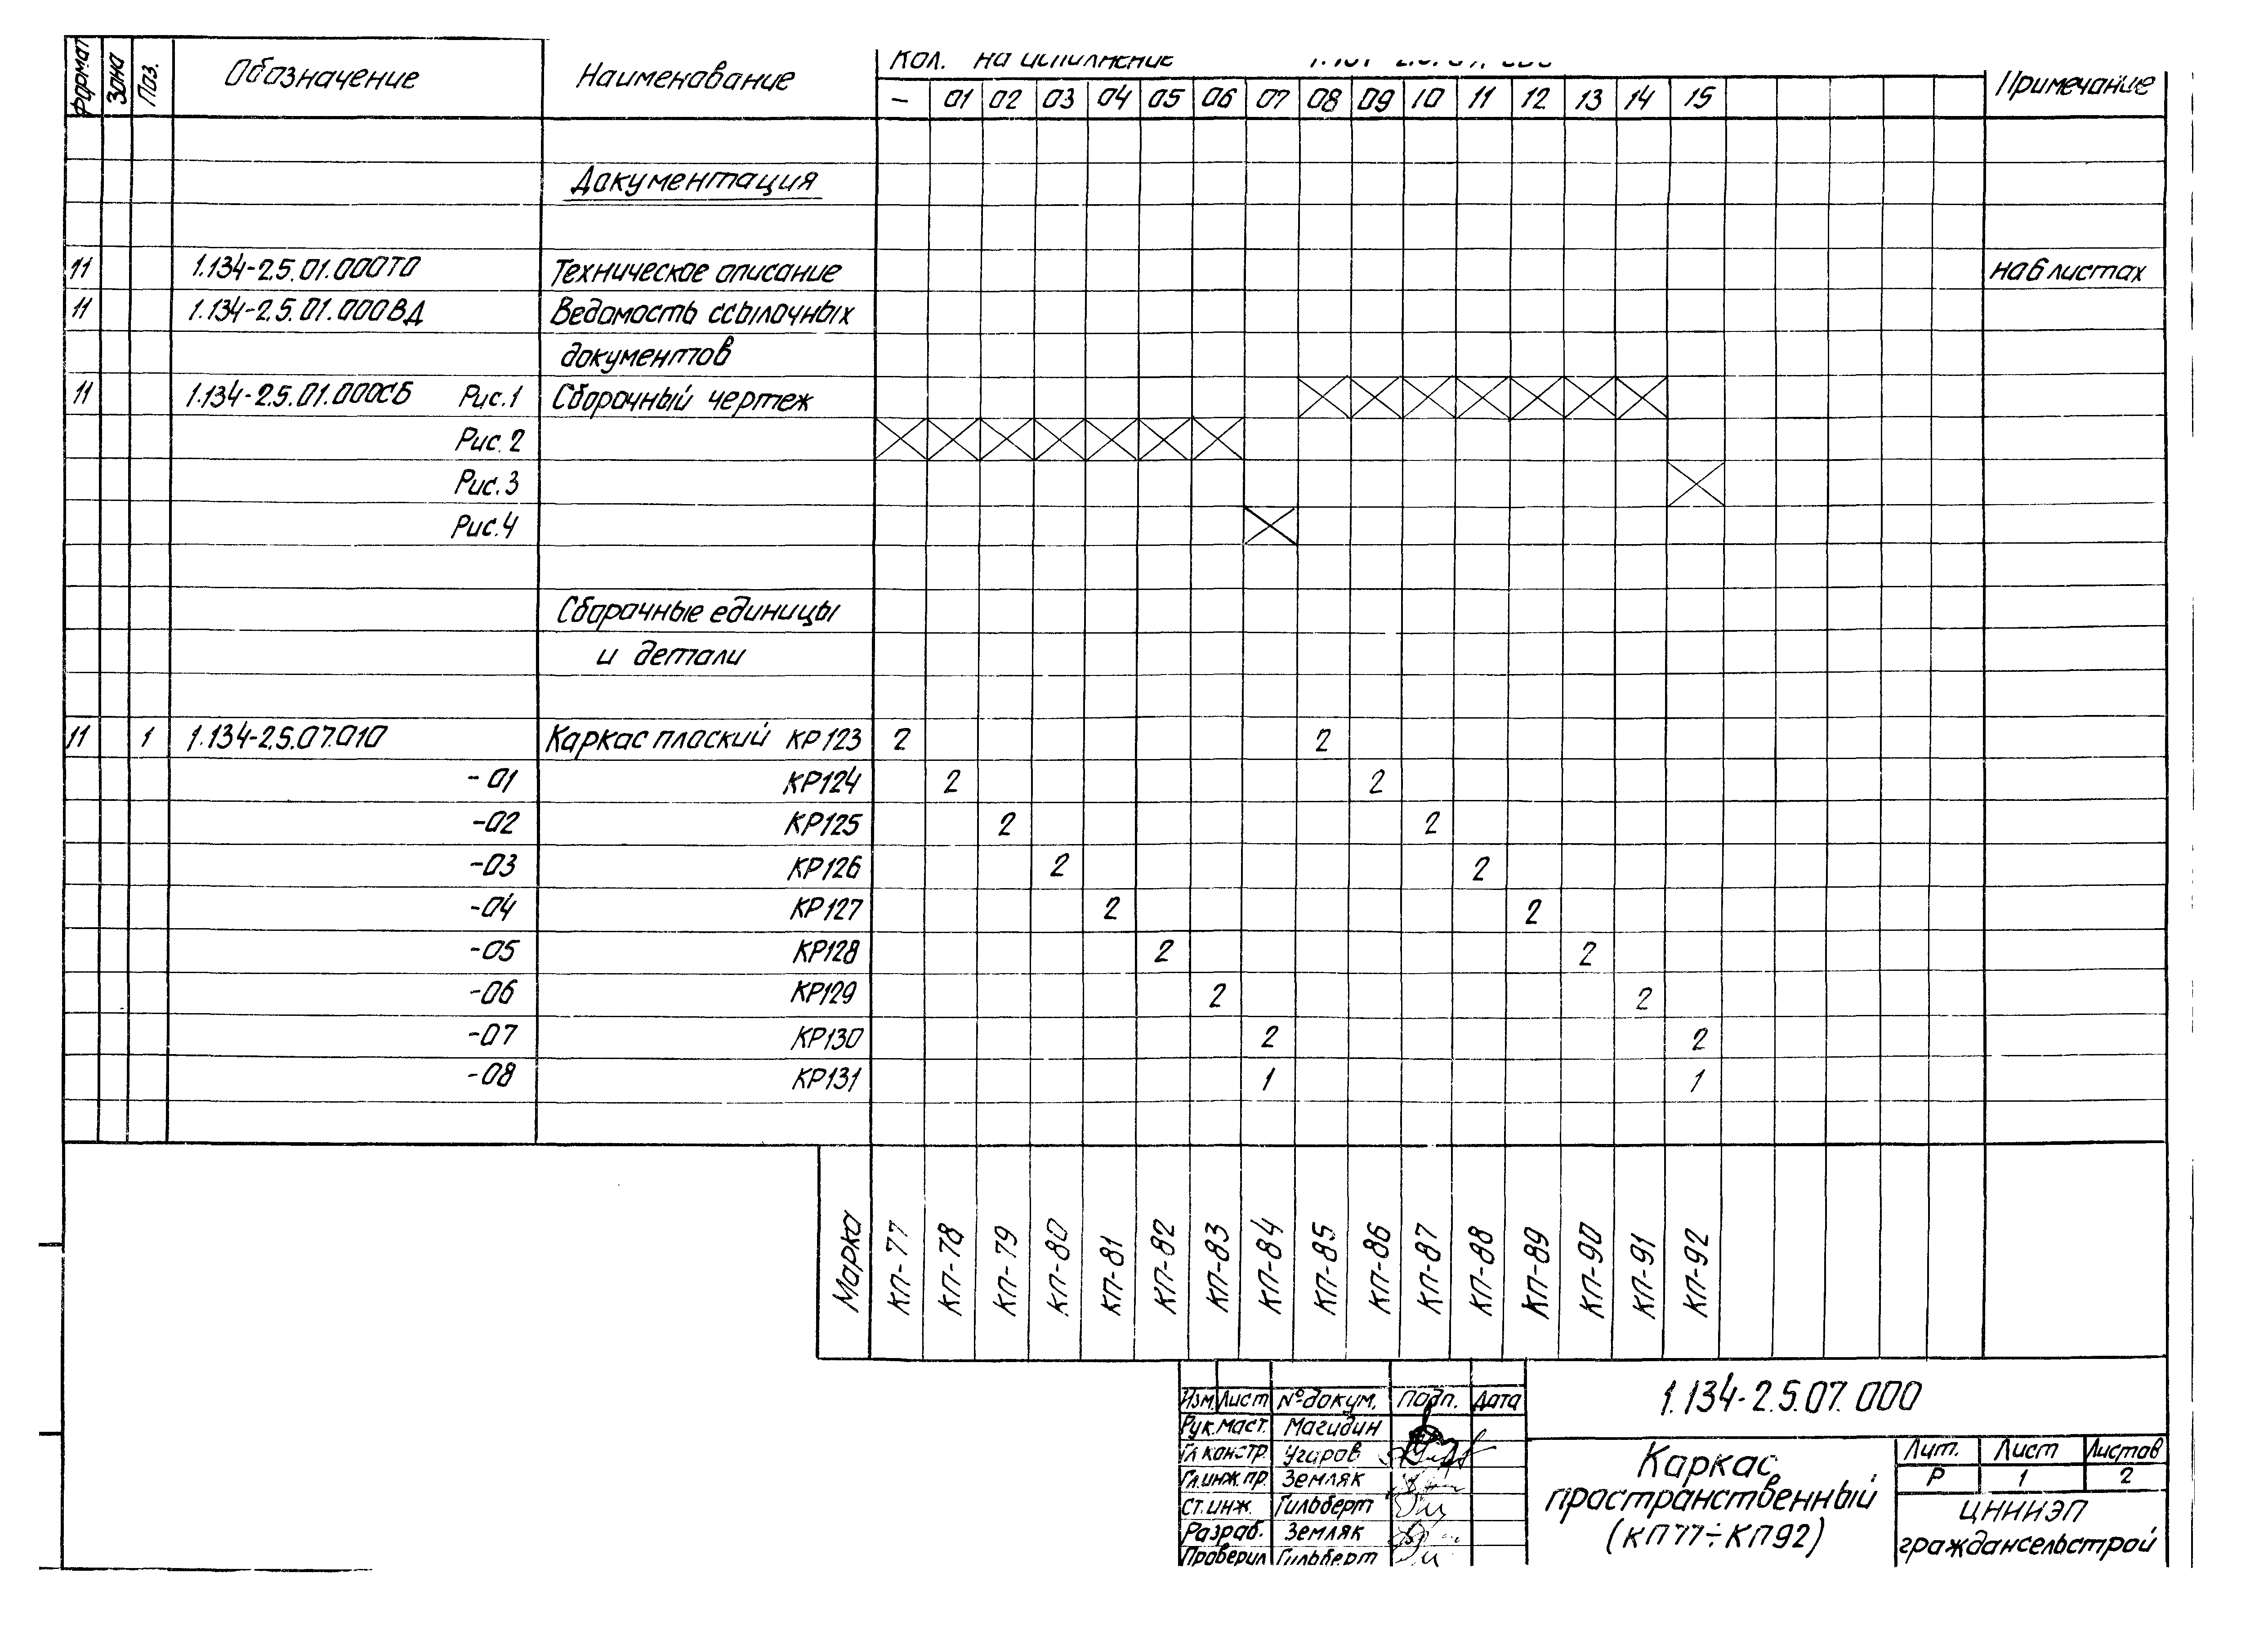 Формат Зона Поз. Обозначение Наименование Кол. на исполнение Примечание
– 01 02 03 04 05 06 07 08 09 10 11 12 13 14 15
Документация
11 1.134-2.5.01.000ТО Техническое описание на 6 листах
11 1.134-2.5.01.000ВД Ведомость ссылочных
документов
11 1.134-2.5.01.000СБ Рис.1 Сборочный чертеж
Рис. 2
Рис. 3
Рис. 4
Сборочные единицы
и детали
11 1 1.134-2.5.07.010 Каркас плоский КР123 2 2
-01 КР124 2 2
-02 КР125 2 2
-03 КР126 2 2
-04 КР127 2 2
-05 КР128 2 2
-06 КР129 2 2
-07 КР130 2 2
-08 КР131 1 1
Марка КП-77 КП-78 КП-79 КП-80 КП-81 КП-82 КП-83 КП-84 КП-85 КП-86 КП-87 КП-88 КП-89 КП-90 КП-91 КП-92
1.134-2.5.07.000
Изм. Лист № докум. Подп. Дата
Рук. маст. Магидин
Гл. констр. Угаров
Гл. инж. пр. Земляк
Ст. инж. Гильберт
Разраб. Земляк
Проверил Гильберт
Каркас
пространственный
(КП77÷КП92)
Лит. Лист Листов
Р 1 2
ЦНИИЭП
граждансельстрой